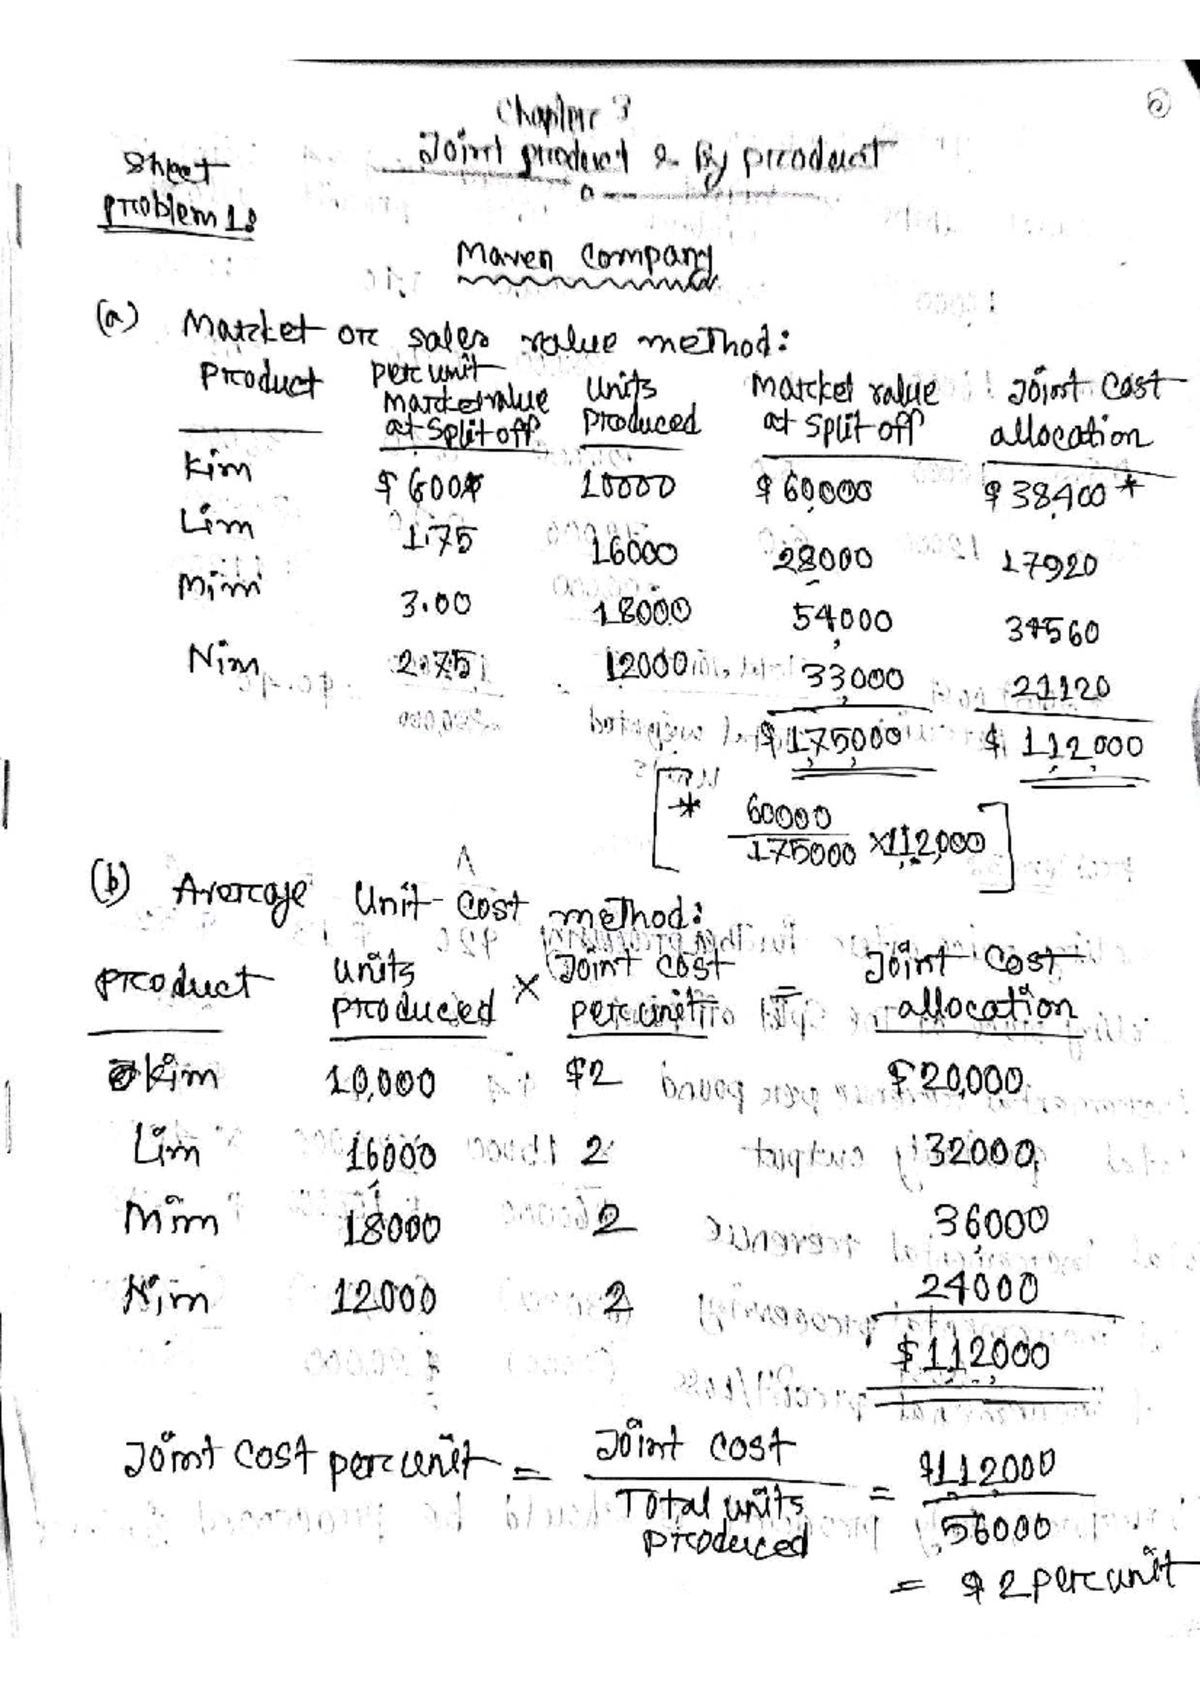 6
Chapter 3
Joint product & By product
Sheet
problem 1:
Maven Company
(a) Market or sales value method:
Product | per unit market value at Split off | units produced | Market value at Split off | Joint Cost allocation
Kim $6.00 10000 $60,000 $38,400 *
Lim 1.75 16000 28000 17920
Mim 3.00 18000 54,000 34560
Nim 2.75 12000 33,000 21120
$175000 $112,000
[* 60000 / 175000 × 112,000]
(b) Average Unit-cost method:
product | units produced × Joint cost per unit = Joint Cost allocation
Kim 10,000 $2 $20,000
Lim 16000 2 32000
Mim 18000 2 36000
Nim 12000 2 24000
$112000
Joint cost per unit = Joint cost / Total units produced = $112000 / 56000
= $2 per unit